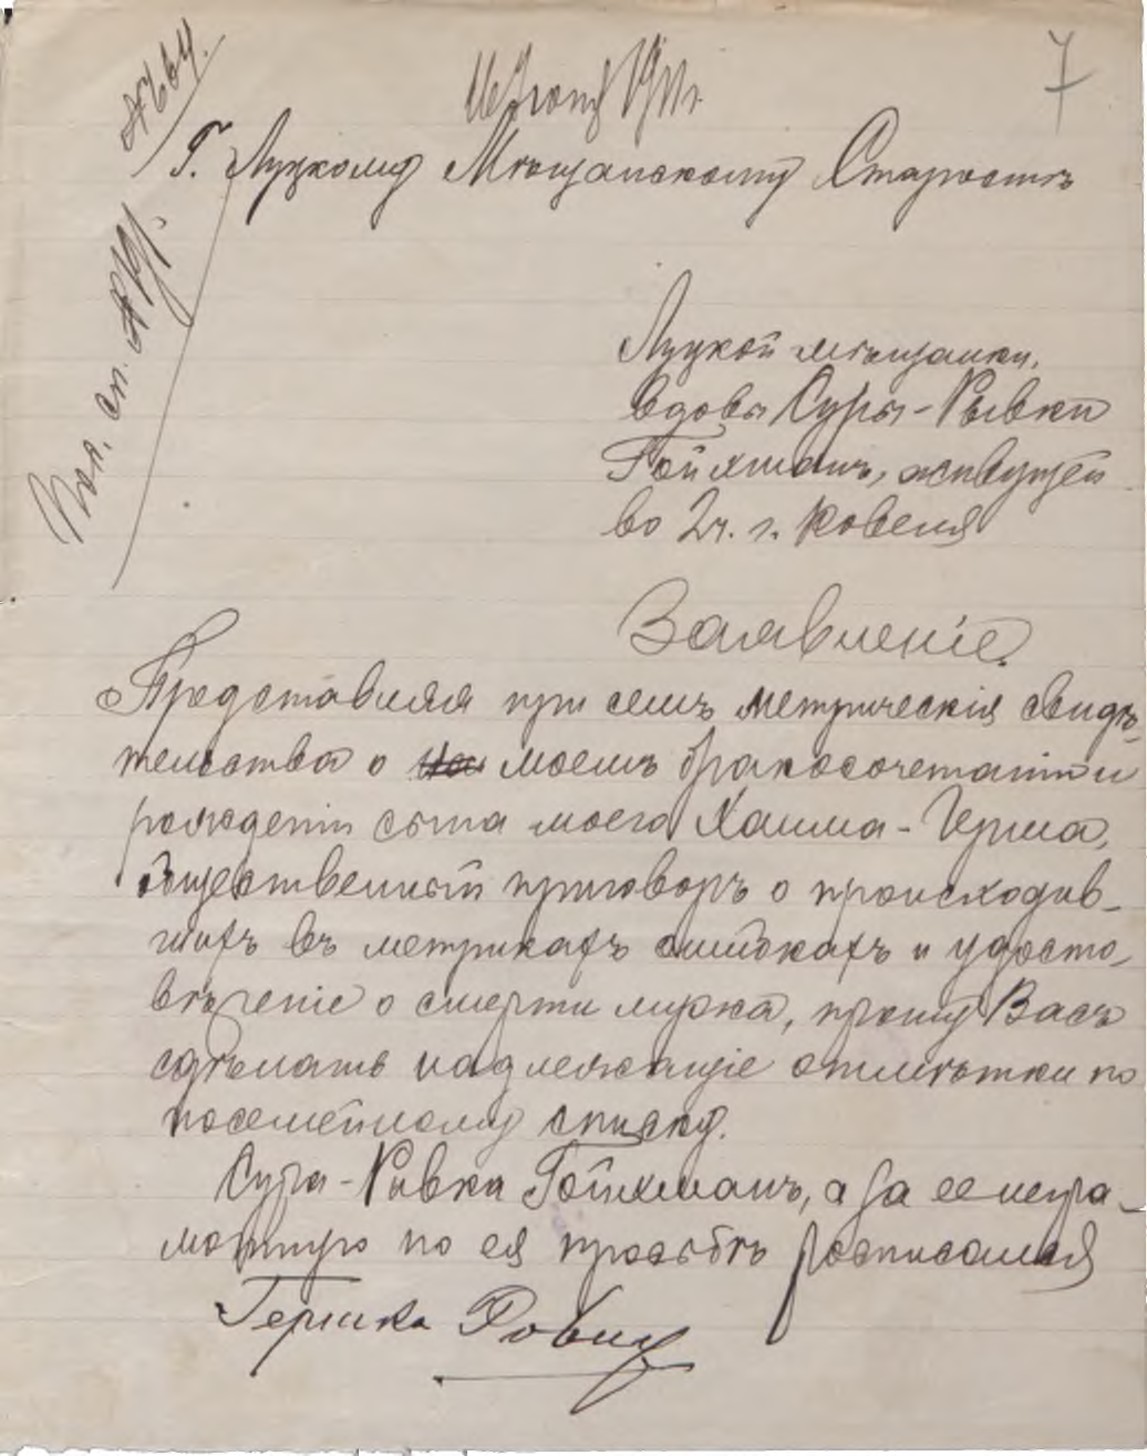 7
№ 664.
1911 г.
Г. Луцкому Мѣщанскому Старостѣ
Пос. сп. №
Луцкой мѣщанки,
вдовы Суры-Рывки
Гойхманъ, живущей
во 2 ч. г. Ковеля
Заявленіе.
Представляя при семъ метрическія свидѣ-
тельства о моемъ бракосочетаніи и
рожденіи сына моего Хаима-Герша,
общественный приговоръ о происходив-
шихъ въ метрикахъ ошибкахъ и удосто-
вѣреніе о смерти мужа, прошу Васъ
сдѣлать надлежащіе отмѣтки по
посемейному списку.
Сура-Ривка Гойхманъ, а за ее негра-
мотную по ея просьбѣ росписался
Гершка